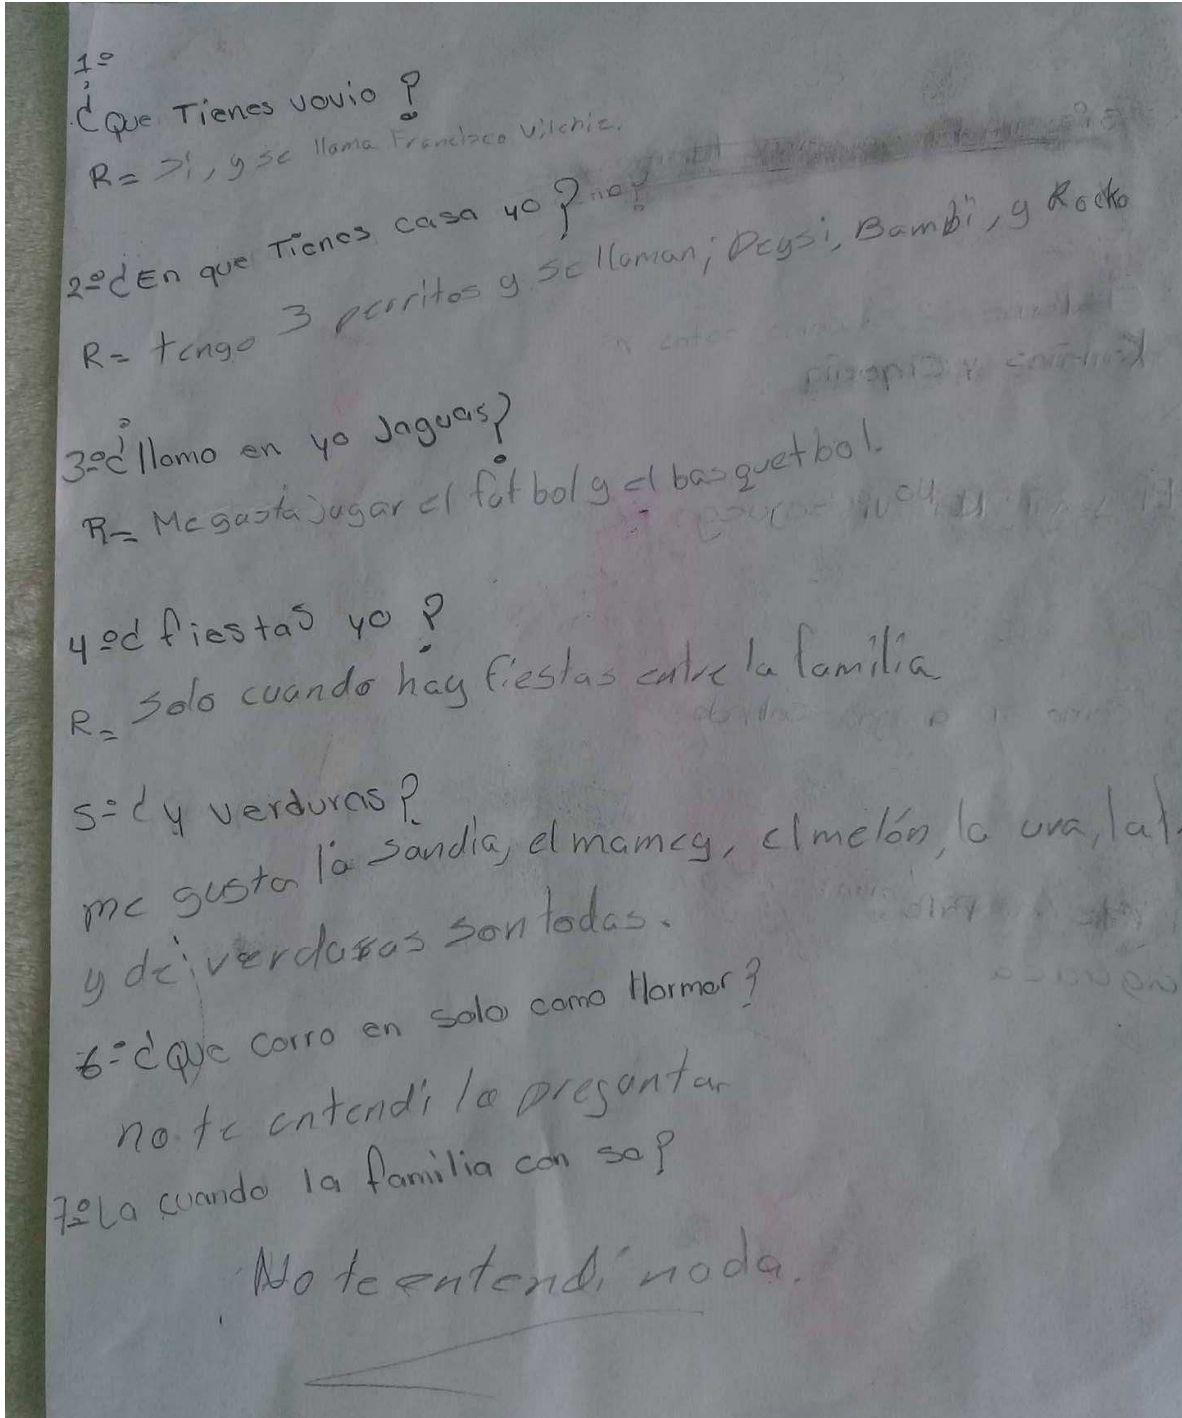 1º
¿Que Tienes vovio?
R= Si, y se llama Francisco Vilchic.
2º ¿En que Tienes casa yo?
R= tengo 3 perritos y se llaman; Deysi, Bambi, y Rocko
3º ¿llomo en yo Jaguas?
R= Me gusta jugar el fut bol y el basquetbol.
4º ¿fiestas yo?
R= Solo cuando hay fiestas entre la familia.
5º ¿y verduras?
me gusta la Sandía, el mamey, el melón, la uva, la
y de verduras son todas.
6º ¿Que corro en solo como Hormor?
no te entendí la preguntar
7º La cuando la familia con se?
No te entendí noda.